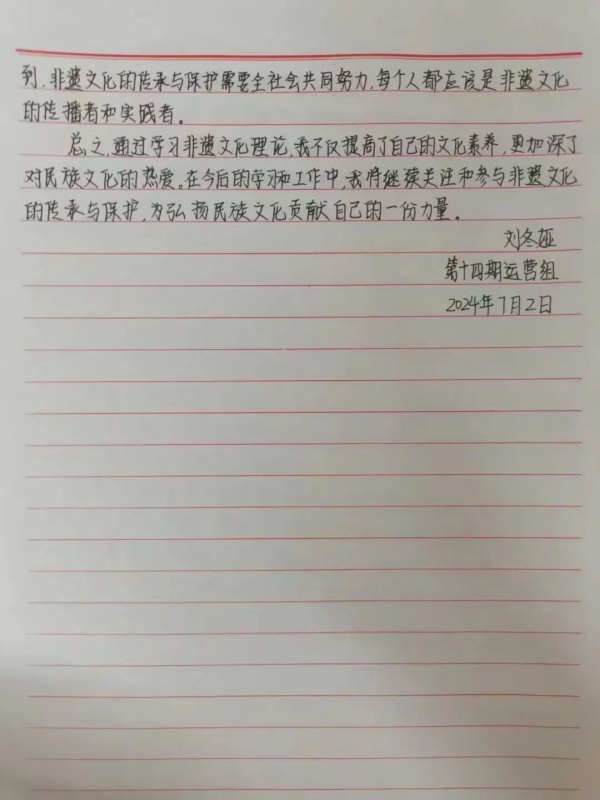 到，非遗文化的传承与保护需要全社会共同努力，每个人都应该是非遗文化
的传播者和实践者。
总之，通过学习非遗文化理论，我不仅提高了自己的文化素养，更加深了
对民族文化的热爱。在今后的学习和工作中，我将继续关注和参与非遗文化
的传承与保护，为弘扬民族文化贡献自己的一份力量。
刘冬娅
第十四期运营组
2024年7月2日